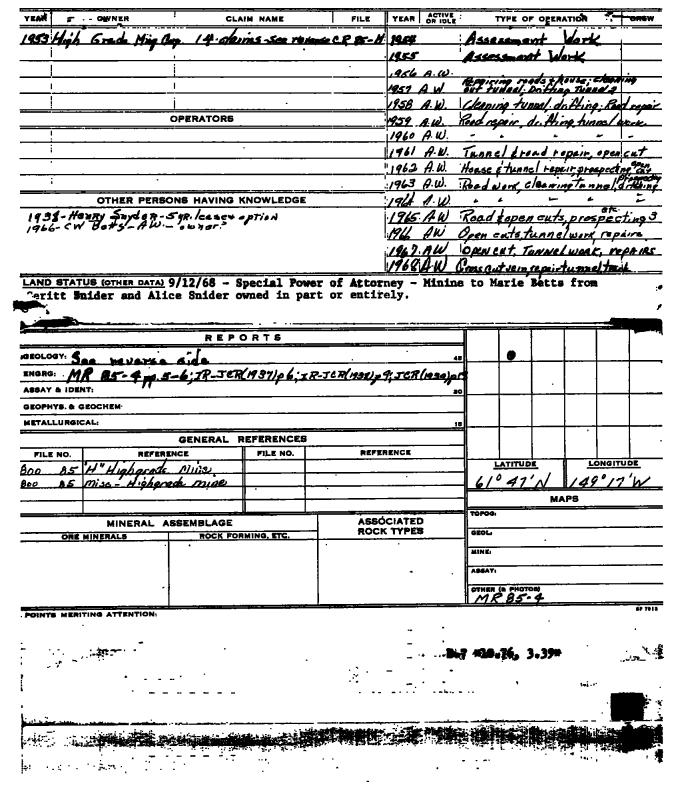 YEAR OWNER CLAIM NAME FILE YEAR ACTIVE OR IDLE TYPE OF OPERATION CREW
1953 High Grade Mng Corp. 14 claims - see reverse CR 85-H 1954 Assessment Work
1955 Assessment Work
1956 A.W.
1957 A W Repairing roads & house; cleaning out tunnel. Drifting Tunnel 2
1958 A.W. Cleaning tunnel. drifting. Road repair
OPERATORS 1959 A.W. Road repair, drifting tunnel work
1960 A.W. " " "
1961 A.W. Tunnel & road repair, open cut
1962 A.W. House & tunnel repair, prospecting open cut
1963 A.W. Road work, cleaning tunnel, prospecting drifting
OTHER PERSONS HAVING KNOWLEDGE 1964 A.W. " " " "
1938 - Henry Snyder - 5 yr. lease & option 1965 AW Road & open cuts, prospecting etc. 3
1966 - CW Betts - AW - owner? 1966 AW Open cuts, tunnel work, repairs
1967 AW OPEN CUT, TUNNEL WORK, REPAIRS
1968 AW Cross cut vein, repair tunnel, trail
LAND STATUS (OTHER DATA) 9/12/68 - Special Power of Attorney - Minine to Marie Betts from
Meritt Snider and Alice Snider owned in part or entirely.
REPORTS
GEOLOGY: See reverse side 45
ENGRG: MR 85-4 pp. 5-6; IR-JCR(1937) p 6; IR-JCR(1938) p 9; JCR(1930) p
ASSAY & IDENT: 30
GEOPHYS. & GEOCHEM.
METALLURGICAL: 15
GENERAL REFERENCES
FILE NO. REFERENCE FILE NO. REFERENCE
Boo 85 "H" Highgrade Mine
Boo 85 Misc - Highgrade mine
LATITUDE LONGITUDE
61° 47' N 149° 17' W
MINERAL ASSEMBLAGE ASSOCIATED ROCK TYPES MAPS
ORE MINERALS ROCK FORMING, ETC.
TOPOG:
GEOL:
MINE:
ASSAY:
OTHER (& PHOTOS)
MR 85-4
POINTS MERITING ATTENTION:
#20.76, 3.39#